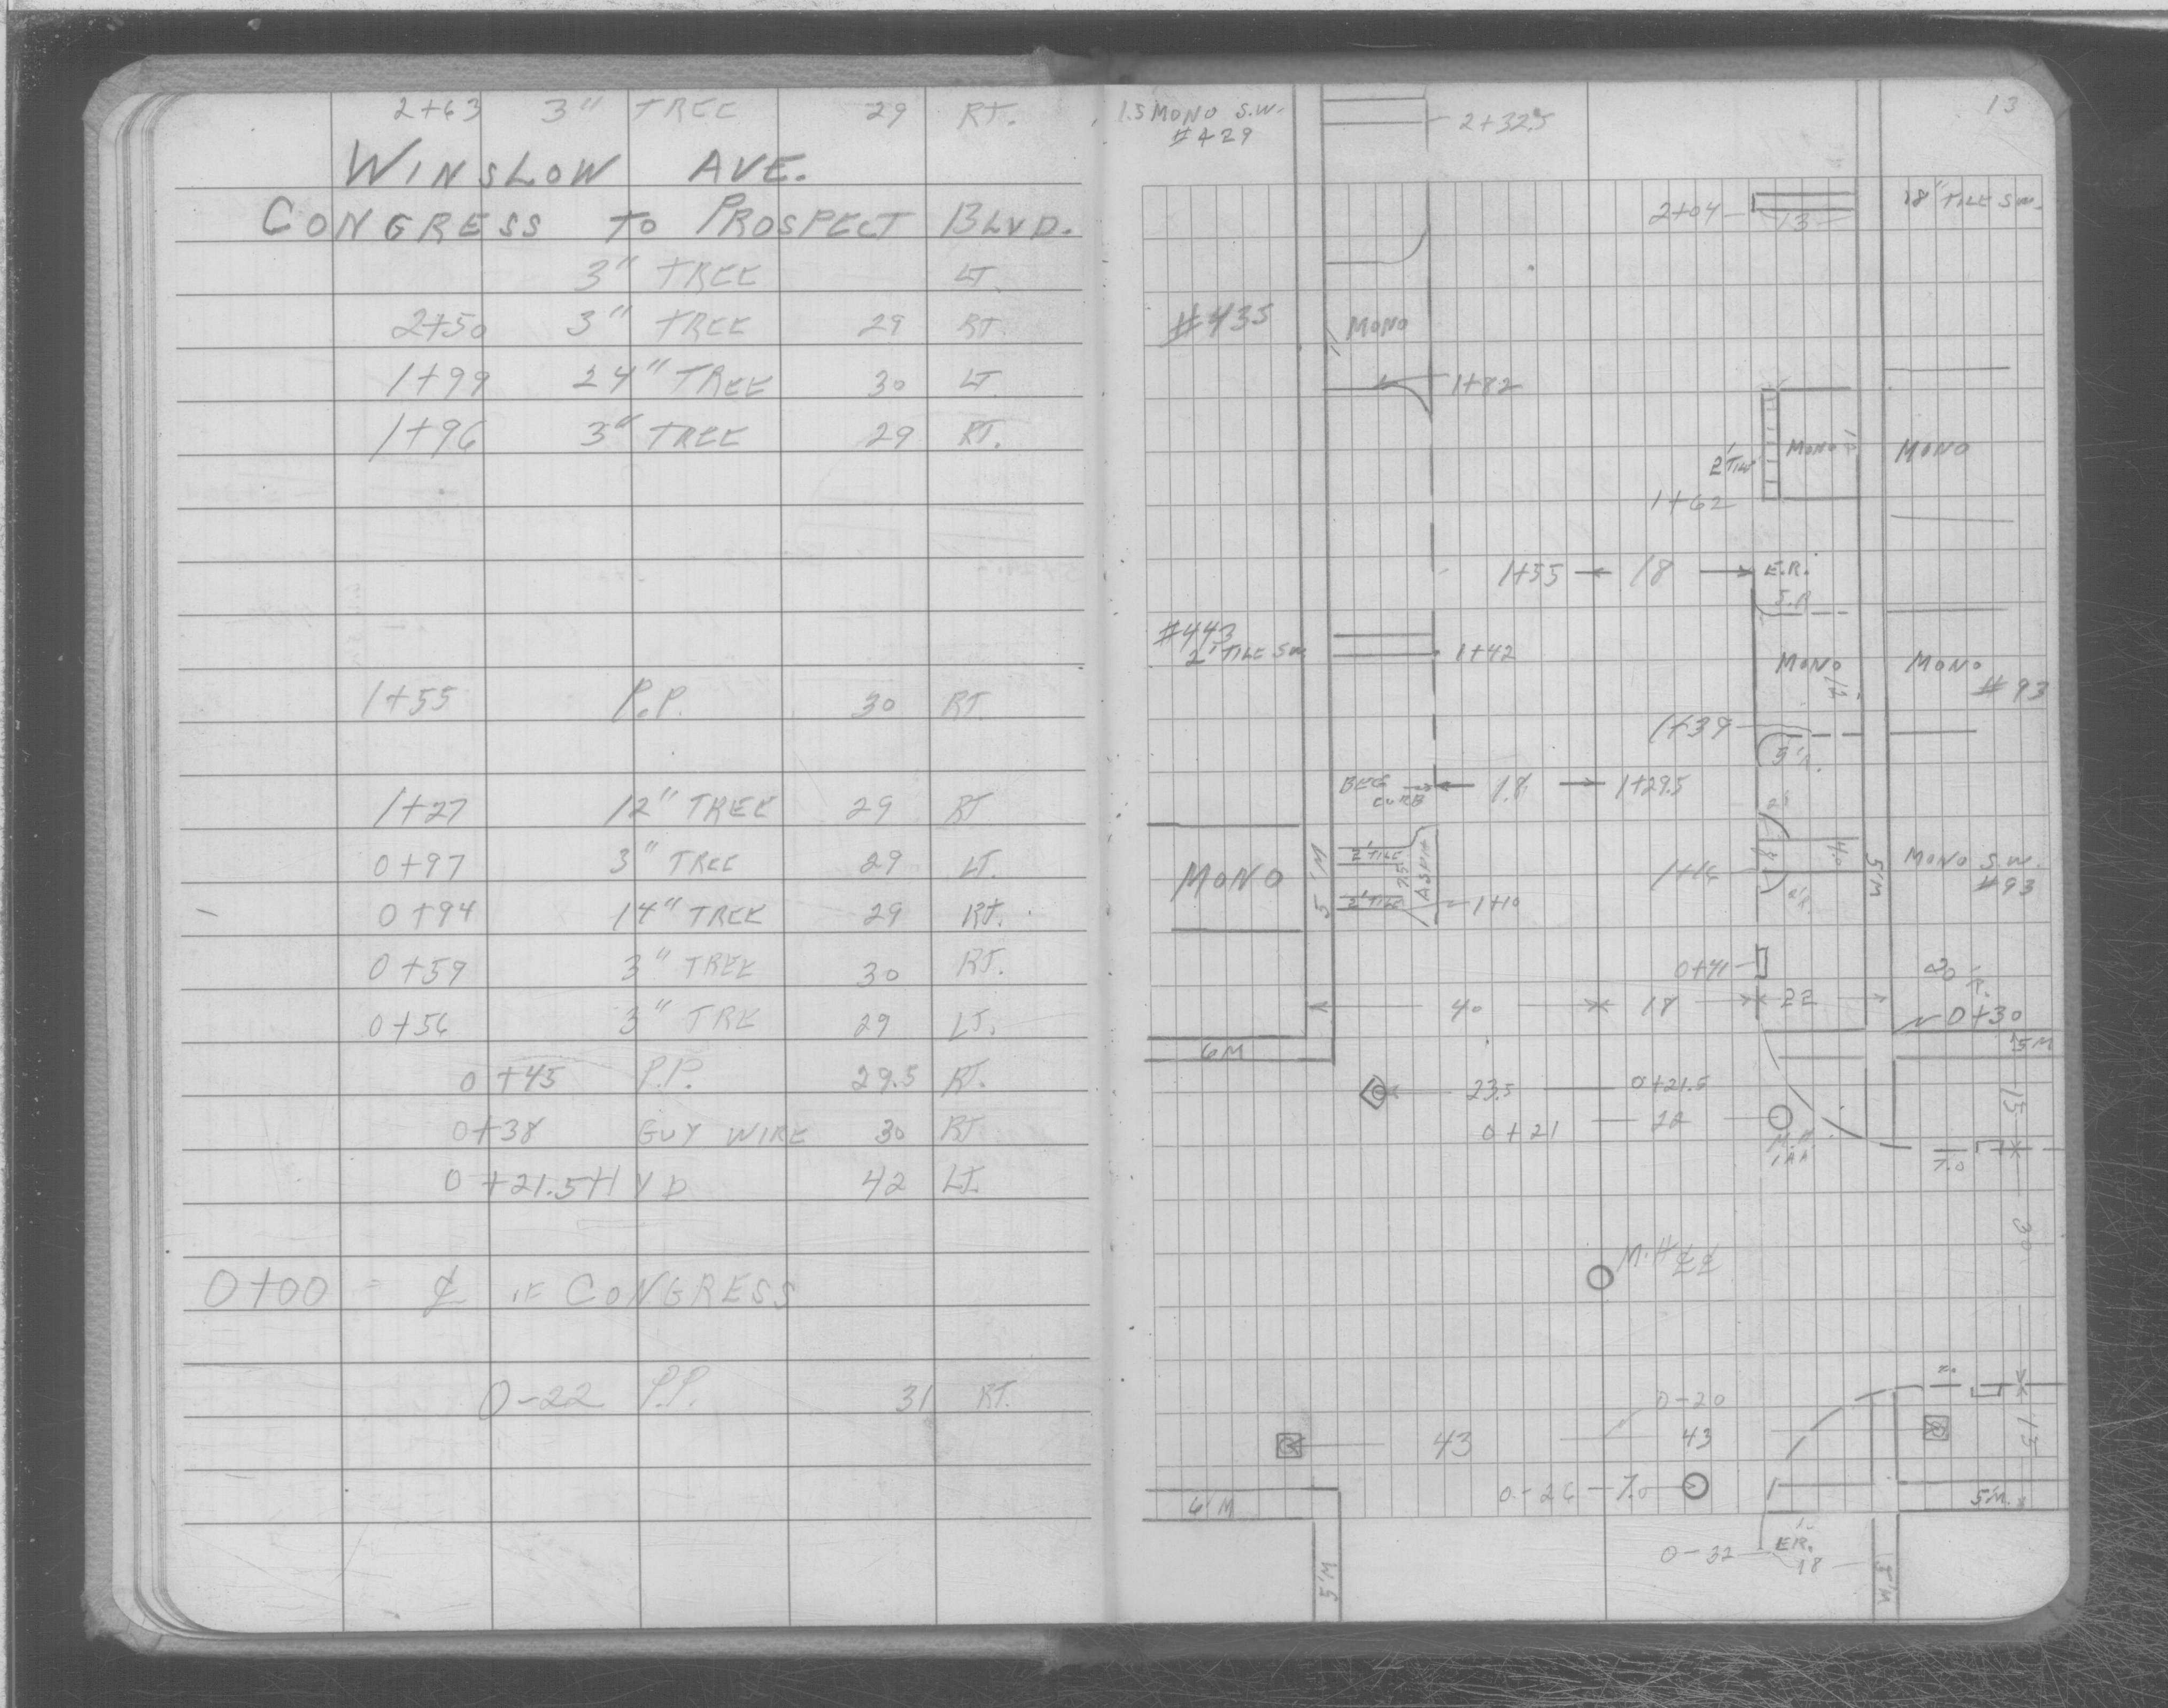 2+63 3" TREE 29 RT.
WINSLOW AVE.
CONGRESS TO PROSPECT BLVD.
3" TREE LT.
2+50 3" TREE 29 RT.
1+99 24" TREE 30 LT
1+96 3" TREE 29 RT.
1+55 P.P. 30 RT.
1+27 12" TREE 29 RT
0+97 3" TREE 29 LT.
0+94 14" TREE 29 RT.
0+59 3" TREE 30 RT.
0+56 3" TRE 29 LT.
0+45 P.P. 29.5 RT.
0+38 GUY WIRE 30 RT
0+21.5 HYD 42 LT.
0+00 = ℄ OF CONGRESS
0-22 P.P. 31 RT.
13
1.5 MONO S.W.
#429
2+32.5
2+04 13 18" TILE SW.
#435 MONO
1+82
2' TILE MONO MONO
1+62
1+55 18 E.R.
5'R
#443
2' TILE SW
1+42
MONO MONO
#93
1+39
5'R.
BEG CURB 18 1+29.5
2'
MONO 5'M 2' TILE ASPH
2' TILE 1+10
4 5'M MONO S.W.
#93
2'R.
0+41 20 R.
40 18 22 0+30
6M 5M
23.5 0+21.5
0+21 22
M.H. 15
7.0
30
M.H. ℄ ℄
0-20
43 43 13
0-26 7.0
6'M 5'M.
0-32 E.R. 18
5'M 5'M